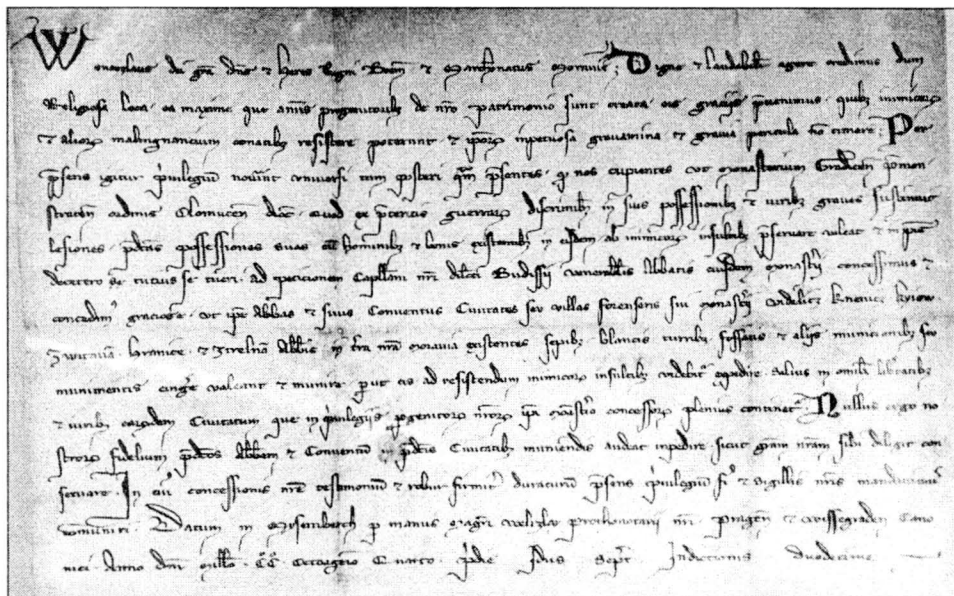 Wencezlaus dei gra dns & heres regni Boem & Marchionatus Moravie; Digne & laudabilit agere credimus dum
Religiosa loca ea maxime que a nris progenitoribz de nro patrimonio sunt creata eis graciis prevenimus quibz inimicorz
& aliorz malingnancium conatibz resistere poterunt & iporz inpetuosa gravamina & gravia pericula non timere; Per
psens igitur privilegiu noverint universi tam posteri qm psentes q nos cupientes ut monasterium Gradicen premon
stracen ordinis Olomucen dioc quod ex pteritis guerrarz discriminibz in suis possessionibz & iuribz graves sustinuit
lesiones pdcas possessiones suas cu hominibz & bonis existentibz in eisdem ab inimicorz insultibz pservare valeat & in
decetero se tucius se tueri ad peticionem Capellani nri dilcti Budissii venerabilis Abbatis eiusdem monastii concessimus &
concedim graciose ut ipe Abbas & suus Conventus Civitates seu villas forenses sui monastii videlicz Knenicz Know
Zwitavia Hranicz & Jrelnam Abbis in tra nra Moravia existentes sepibz blancis turribz fossatis & aliis municionibz seu
munimentis cingere valeant & munire put eis ad resistendum inimicorz insultibz videbit expedire Salvis in omibz libtatibz
& iuribz earzdem Civitatum que in privilegiis pgenitorz nrorz ipi monastio concessorz plenius continet Nullus ergo no
strorz fidelium pdcos Abbem & Conventu in pdcis Civitatibz muniendis audeat inpedire sicut gram nram sibi diligit con
servare In cui concessionis nre testimoniu & robur firmit duraturu psens privilegiu fi & sigillis nris mandavim
comuniri Datum in Misemberch p manus magri Welizlai prothonotarii nri pragen & wissegraden Cano
nici Anno dni millo CC Octuagesio Quarto pdie Idus Septr Indictionis duodecime